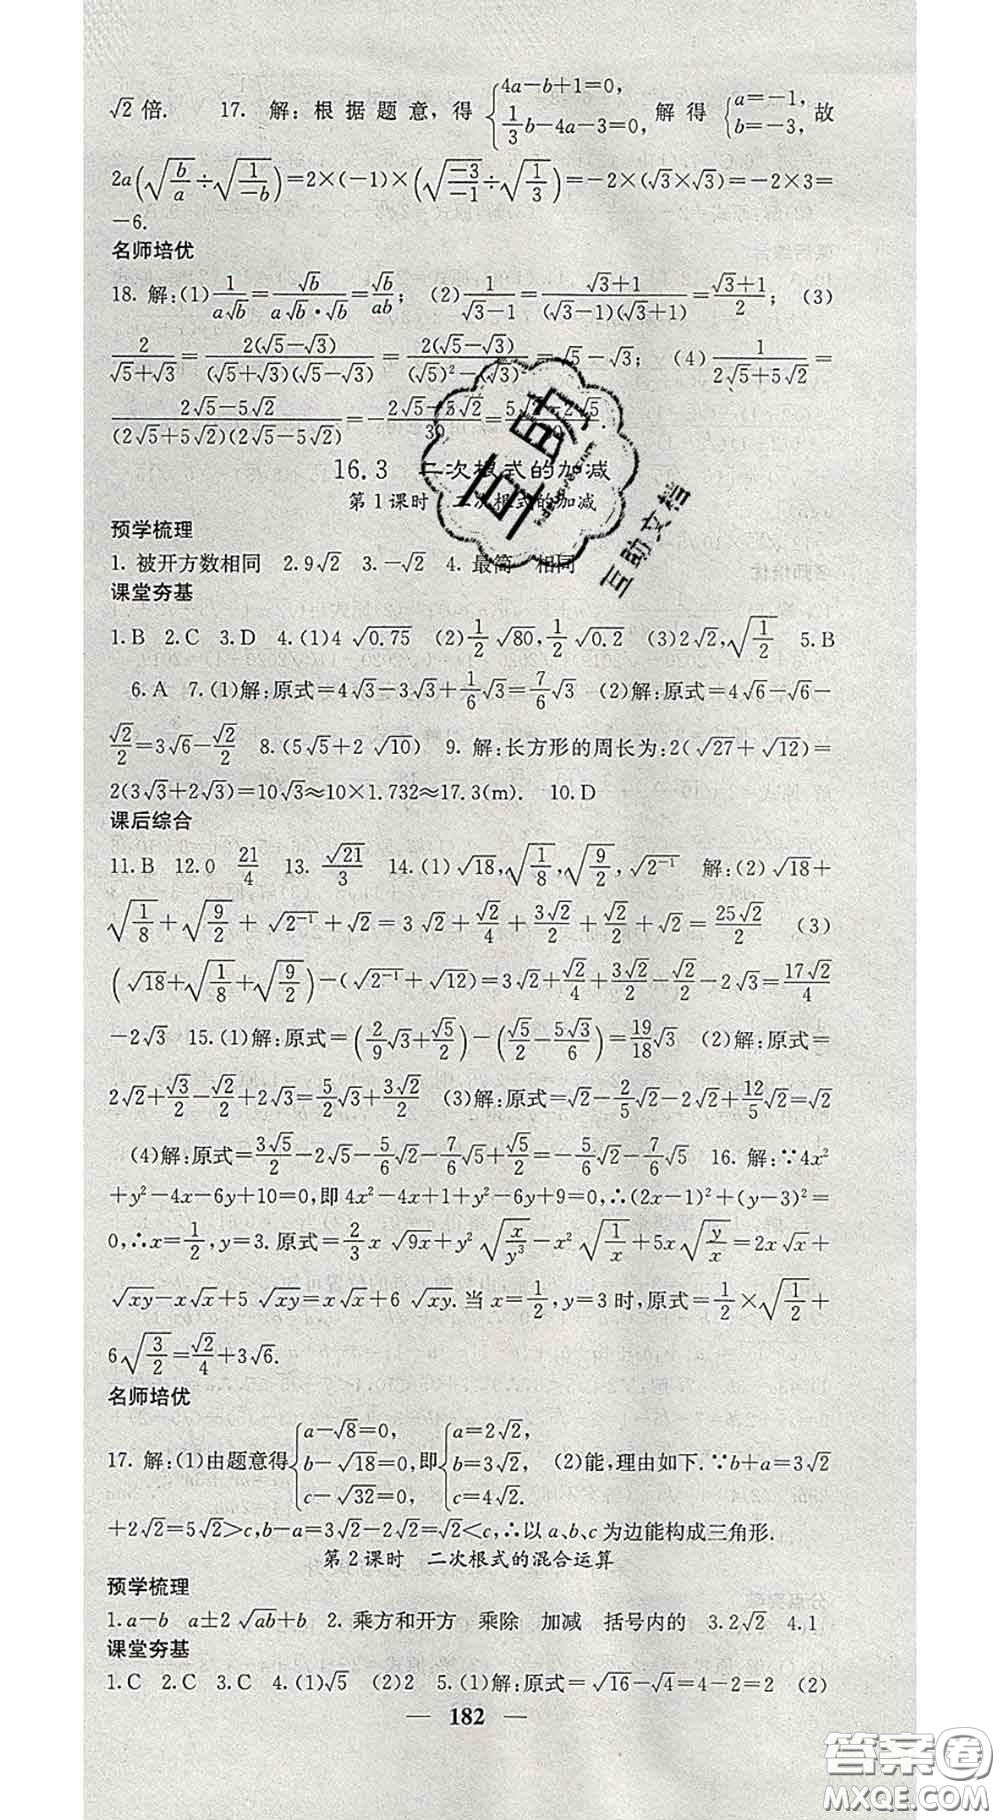 √2倍.  17. 解:根据题意,得{4a−b+1=0, 1/3 b−4a−3=0, 解得{a=−1, b=−3, 故
2a(√(b/a)÷√(1/−b))=2×(−1)×(√(−3/−1)÷√(1/3))=−2×(√3×√3)=−2×3=
−6.
名师培优
18. 解:(1)1/(a√b)=√b/(a√b·√b)=√b/(ab); (2)1/(√3−1)=(√3+1)/((√3−1)(√3+1))=(√3+1)/2; (3)
2/(√5+√3)=2(√5−√3)/((√5+√3)(√5−√3))=2(√5−√3)/((√5)²−(√3)²)=√5−√3; (4)1/(2√5+5√2)=
(2√5−5√2)/((2√5+5√2)(2√5−5√2))=−(2√5−5√2)/30=
16.3 二次根式的加减
第1课时 二次根式的加减
预学梳理
1. 被开方数相同 2. 9√2 3. −√2 4. 最简 相同
课堂夯基
1. B 2. C 3. D 4. (1)4√0.75 (2)1/2 √80, 1/2 √0.2 (3)2√2, √(1/2) 5. B
6. A 7. (1)解:原式=4√3−3√3+1/6 √3=7/6 √3 (2)解:原式=4√6−√6−
√2/2=3√6−√2/2 8. (5√5+2√10) 9. 解:长方形的周长为:2(√27+√12)=
2(3√3+2√3)=10√3≈10×1.732≈17.3(m). 10. D
课后综合
11. B 12. 0 21/4 13. √21/3 14. (1)√18, √(1/8), √(9/2), √(2⁻¹) 解:(2)√18+
√(1/8)+√(9/2)+√(2⁻¹)+√2=3√2+√2/4+3√2/2+√2/2+√2=25√2/2 (3)
(√18+√(1/8)+√(9/2))−(√(2⁻¹)+√12)=3√2+√2/4+3√2/2−√2/2−2√3=17√2/4
−2√3 15. (1)解:原式=(2/9 √3+√5/2)−(√5/2−5√3/6)=19/18 √3 (2)解:原式=
2√2+√3/2−√2/2+2√3=5/2 √3+3√2/2 (3)解:原式=√2−2/5 √2−2√2+12/5 √2=√2
(4)解:原式=3√5/2−2√5−5/6 √5−7/6 √5+√5/2=−5/6 √5−7/6 √5 16. 解:∵4x²
+y²−4x−6y+10=0,即4x²−4x+1+y²−6y+9=0,∴(2x−1)²+(y−3)²=
0,∴x=1/2,y=3.原式=2/3 x√(9x)+y²√(x/y³)−x²√(1/x)+5x√(y/x)=2x√x+
√xy−x√x+5√xy=x√x+6√xy.当x=1/2,y=3时,原式=1/2×√(1/2)+
6√(3/2)=√2/4+3√6.
名师培优
17. 解:(1)由题意得{a−√8=0, b−√18=0, c−√32=0, 即{a=2√2, b=3√2, c=4√2. (2)能,理由如下.∵b+a=3√2
+2√2=5√2>c,b−a=3√2−2√2=√2<c,∴以a、b、c为边能构成三角形.
第2课时 二次根式的混合运算
预学梳理
1. a−b a±2√ab+b 2. 乘方和开方 乘除 加减 括号内的 3. 2√2 4. 1
课堂夯基
1. C 2. C 3. C 4. (1)√5 (2)2 5. (1)解:原式=√16−√4=4−2=2 (2)
— 182 —
互助
互助文档
答案圈
MXQE.COM